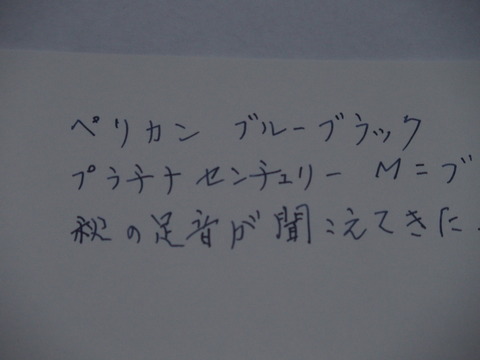 ペリカン ブルーブラック
プラチナ センチュリー M=ブ
秋の足音が聞こえてきた.